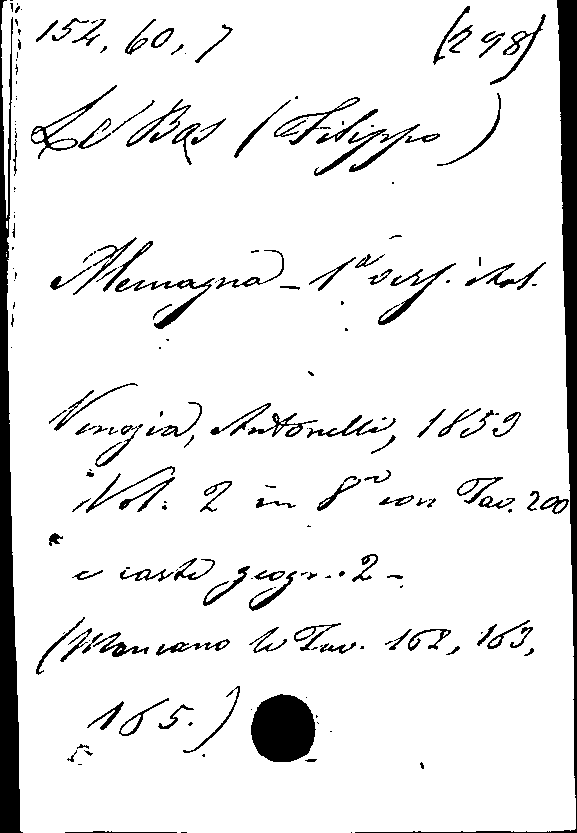 152, 60, 7 (298)
Le Bas (Filippo)
Alemagna - 1ª vers. ital.
Venezia, Antonelli, 1853
Vol. 2 in 8º con Tav. 200
e carte geogr. 2 -
(Mancano le Tav. 162, 163,
165.)